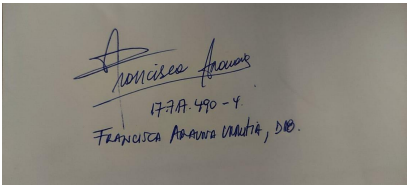 Francisca Arauna
17.717.490-4.
FRANCISCA ARAUNA URRUTIA, DAB.